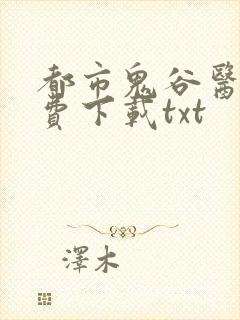 都市鬼谷醫
費下載txt
澤木